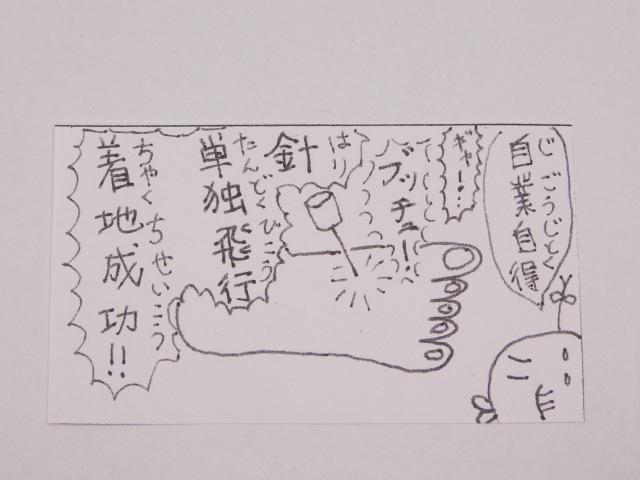 じごうじとく
自業自得
ギャー!…
ブッチュ!
はり
針
たんどくひこう
単独飛行
ちゃくちせいこう
着地成功!!